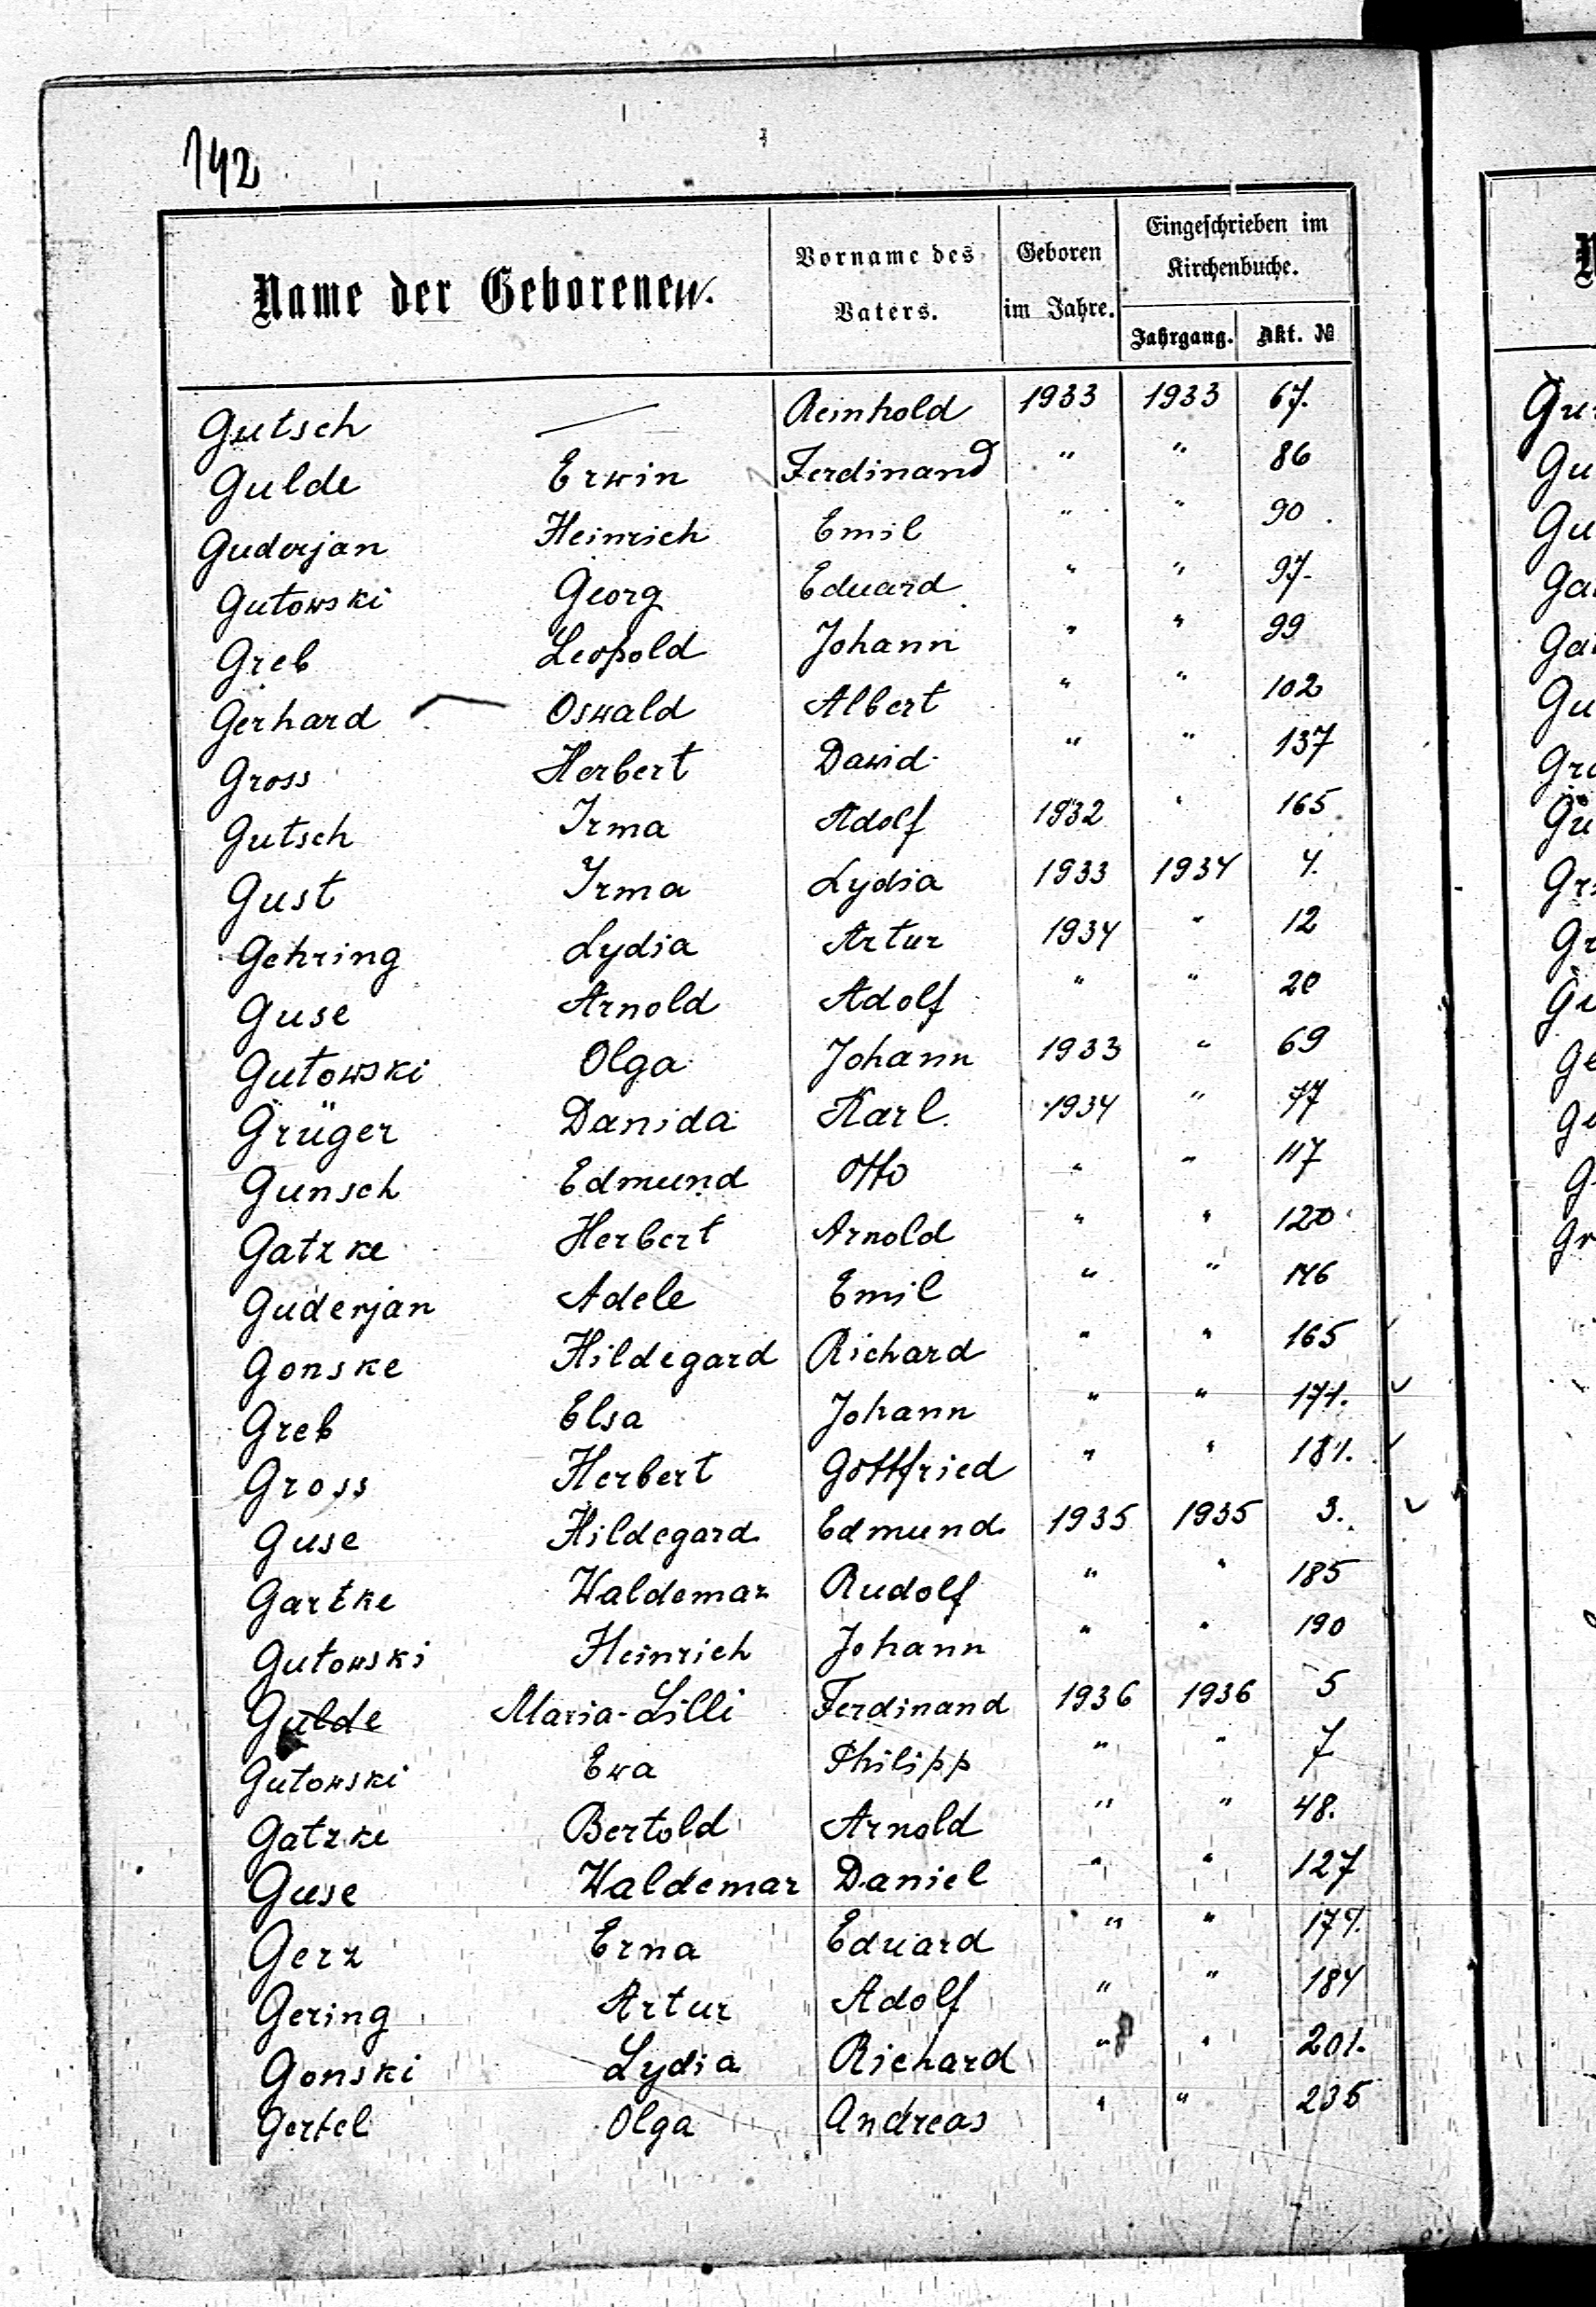 142
Name der Geborenen.
Vorname des Vaters.
Geboren im Jahre.
Eingeschrieben im Kirchenbuche.
Jahrgang. Akt. №
Gutsch — Reinhold 1933 1933 67.
Gulde Erwin Ferdinand " " 86
Guderjan Heinrich Emil " " 90.
Gutowski Georg Eduard " " 97.
Greb Leopold Johann " " 99
Gerhard Oswald Albert " " 102
Gross Herbert Dawid " " 137
Gutsch Irma Adolf 1932 " 165.
Gust Irma Lydia 1933 1934 4.
Gehring Lydia Artur 1934 " 12
Guse Arnold Adolf " " 20
Gutowski Olga Johann 1933 " 69
Grüger Danida Karl. 1934 " 77
Gunsch Edmund Otto " " 117
Gatzke Herbert Arnold " " 120
Guderjan Adele Emil " " 146
Gonske Hildegard Richard " " 165 ✓
Greb Elsa Johann " " 171. ✓
Gross Herbert Gottfried " " 181. ✓
Guse Hildegard Edmund 1935 1935 3. ✓
Gartke Waldemar Rudolf " " 185
Gutowski Heinrich Johann " " 190
Gulde Maria-Lilli Ferdinand 1936 1936 5
Gutowski Ewa Philipp " " 7
Gatzke Bertold Arnold " " 48.
Guse Waldemar Daniel " " 127
Gerz Erna Eduard " "
Gering Artur Adolf " " 184
Gonski Lydia Richard " " 201.
Gertel Olga Andreas " " 235